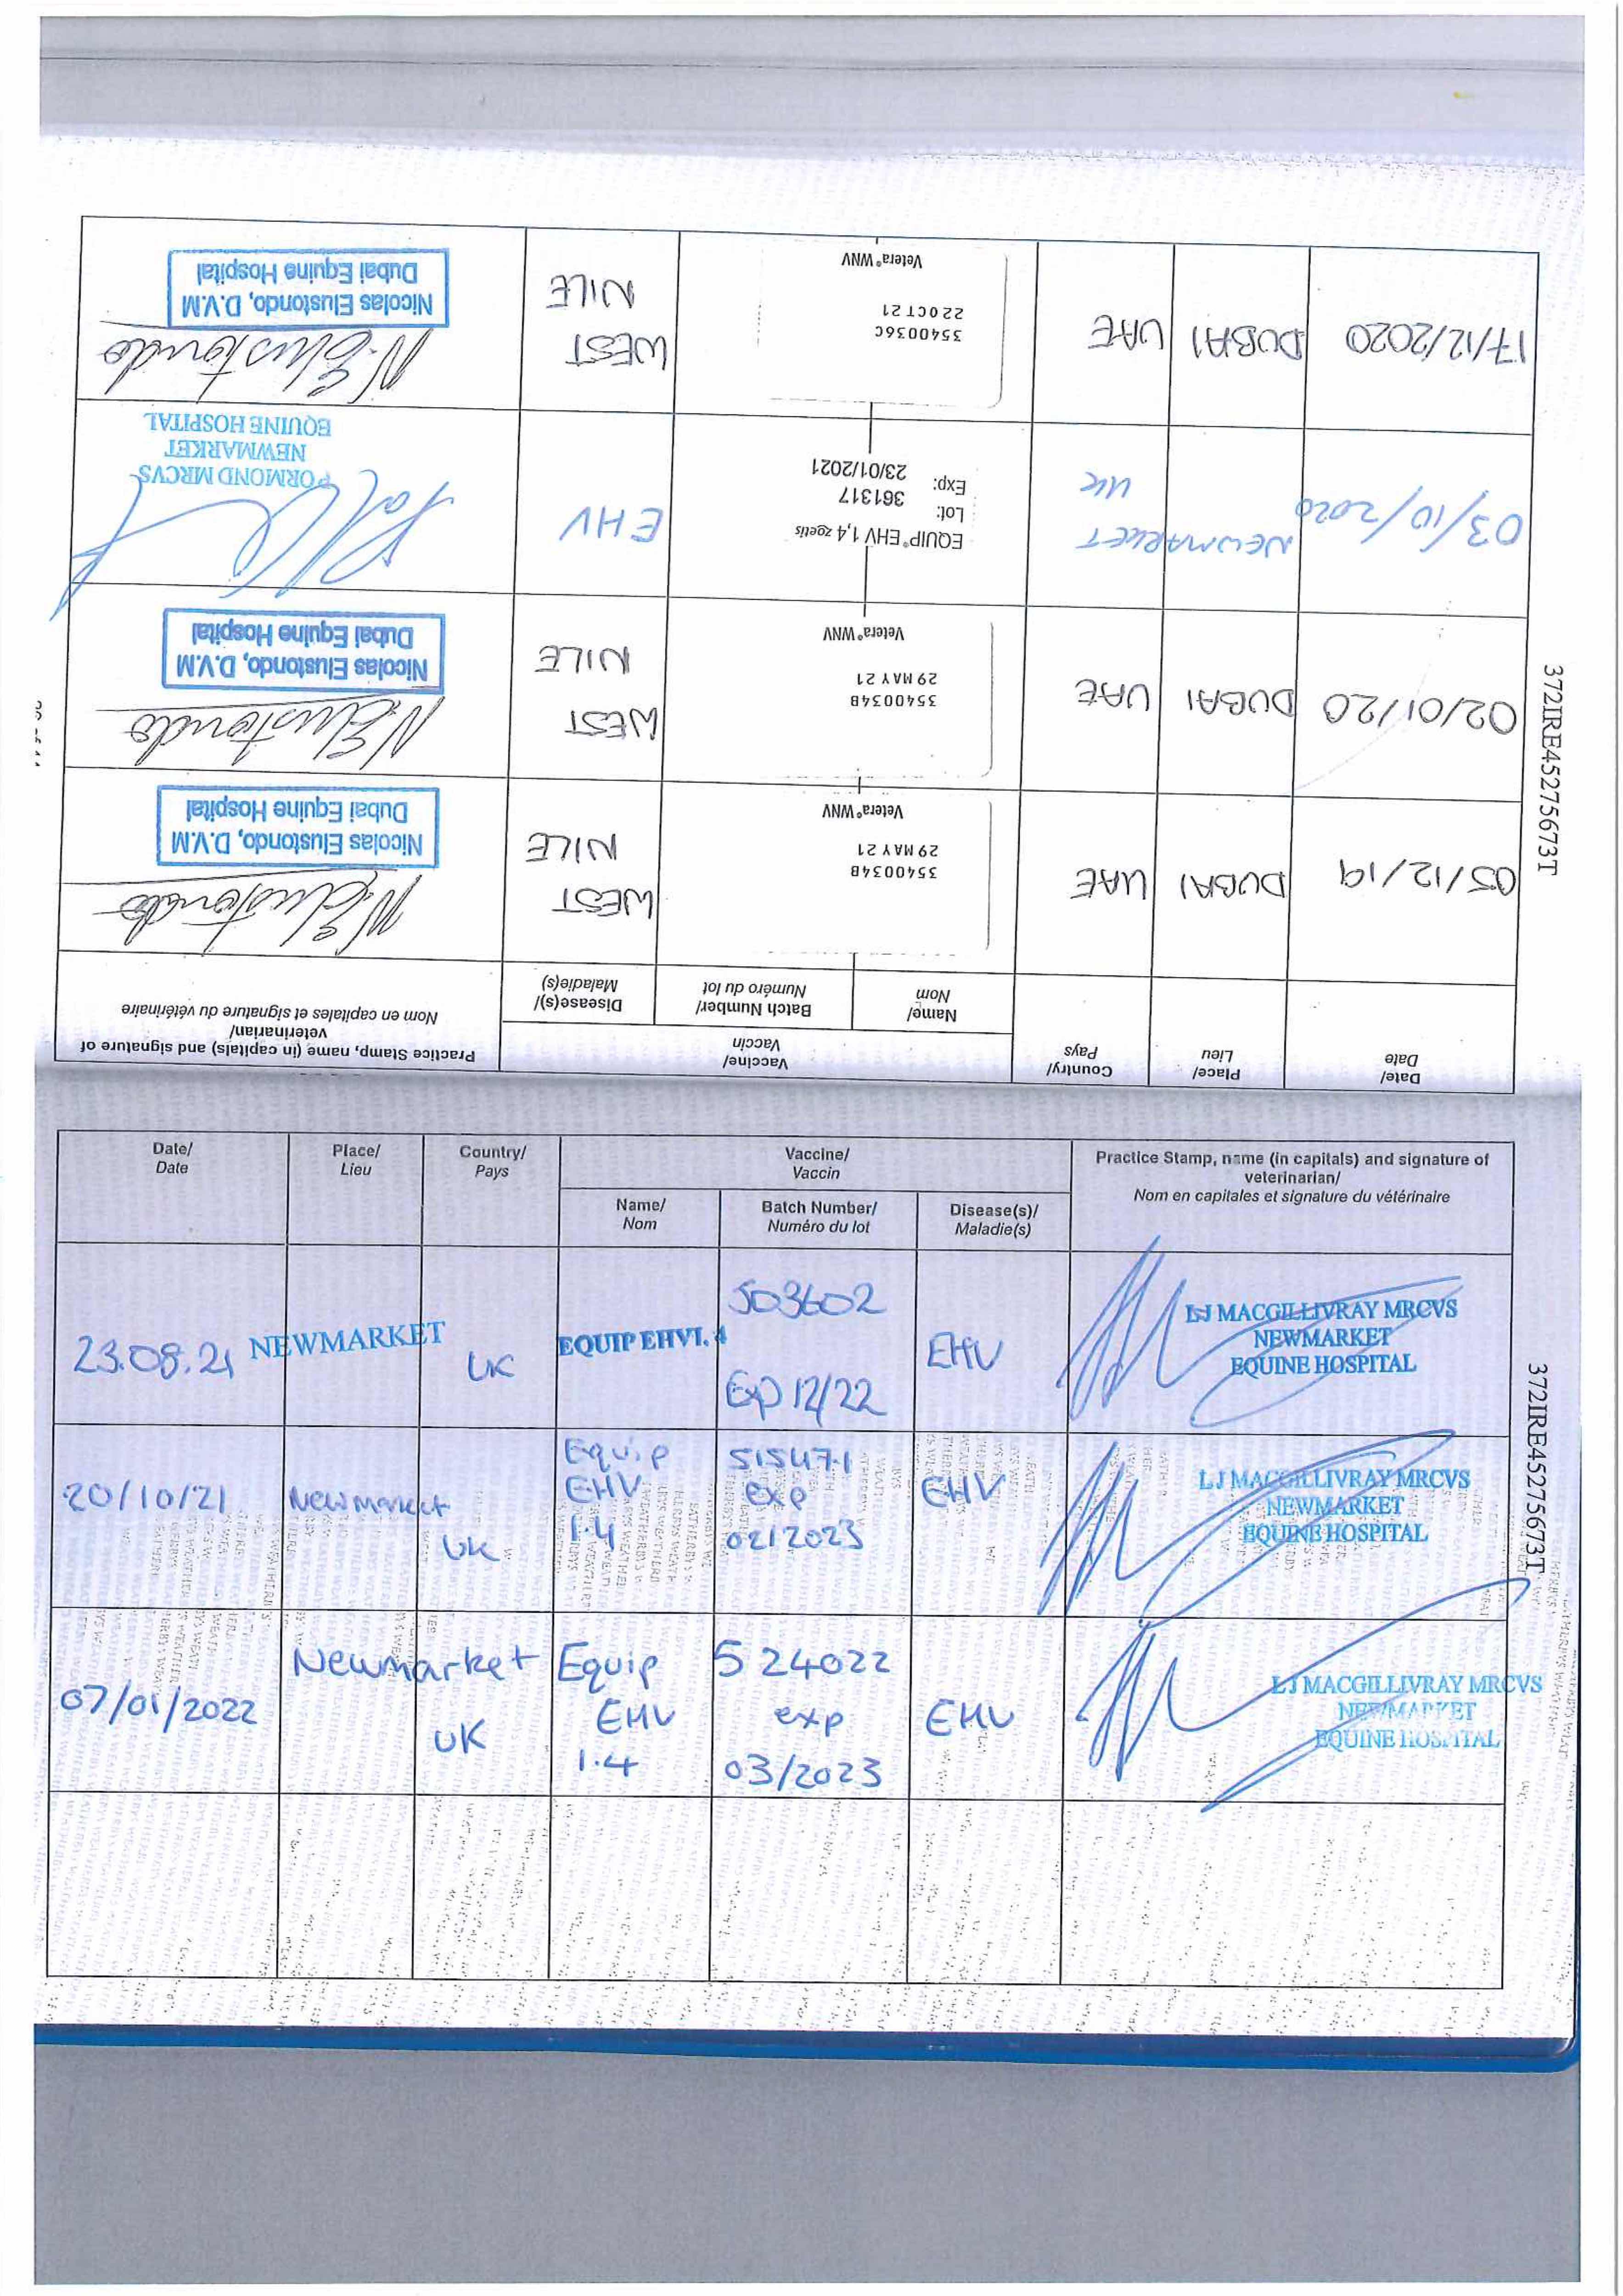 Date/
Date
Place/
Lieu
Country/
Pays
Vaccine/
Vaccin
Name/
Nom
Batch Number/
Numéro du lot
Disease(s)/
Maladie(s)
Practice Stamp, name (in capitals) and signature of
veterinarian/
Nom en capitales et signature du vétérinaire
05/12/19
DUBAI
UAE
3540034B
29 MAY 21
Vetera® WNV
WEST
NILE
N. Elustondo
Nicolas Elustondo, D.V.M
Dubai Equine Hospital
02/01/20
DUBAI
UAE
3540034B
29 MAY 21
Vetera® WNV
WEST
NILE
N. Elustondo
Nicolas Elustondo, D.V.M
Dubai Equine Hospital
03/10/2020
NEWMARKET
UK
EQUIP® EHV 1,4 zoetis
Lot: 361317
Exp: 23/01/2021
EHV
PORMOND MRCVS
NEWMARKET
EQUINE HOSPITAL
17/12/2020
DUBAI
UAE
3540036C
22 OCT 21
Vetera® WNV
WEST
NILE
N. Elustondo
Nicolas Elustondo, D.V.M
Dubai Equine Hospital
372IRE45275673T
Date/
Date
Place/
Lieu
Country/
Pays
Vaccine/
Vaccin
Name/
Nom
Batch Number/
Numéro du lot
Disease(s)/
Maladie(s)
Practice Stamp, name (in capitals) and signature of
veterinarian/
Nom en capitales et signature du vétérinaire
23.08.21
NEWMARKET
UK
EQUIP EHV1.4
503602
Exp 12/22
EHV
LJ MACGILLIVRAY MRCVS
NEWMARKET
EQUINE HOSPITAL
20/10/21
Newmarket
UK
Equip
EHV
1.4
515471
exp
02/2023
EHV
LJ MACGILLIVRAY MRCVS
NEWMARKET
EQUINE HOSPITAL
07/01/2022
Newmarket
UK
Equip
EHV
1.4
524022
exp
03/2023
EHV
LJ MACGILLIVRAY MRCVS
NEWMARKET
EQUINE HOSPITAL
372IRE45275673T